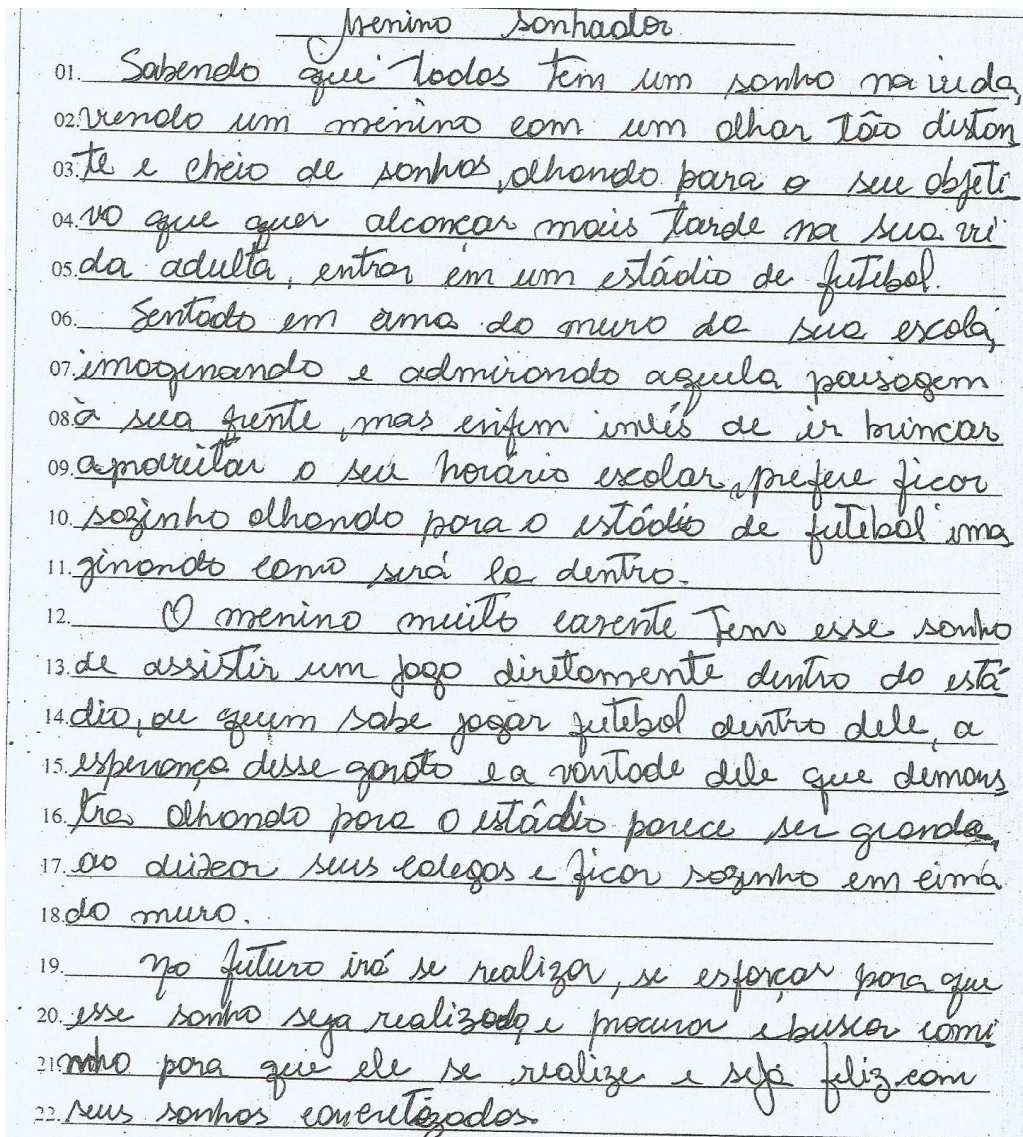 Menino sonhador
01. Sabendo que todos tem um sonho na vida,
02. vendo um menino com um olhar tão distan
03. te e cheio de sonhos, olhando para o seu objeti
04. vo que quer alcançar mais tarde na sua vi
05. da adulta, entrar em um estádio de futebol.
06. Sentado em cima do muro da sua escola,
07. imaginando e admirando aquela paisagem
08. à sua frente, mas enfim invés de ir brincar
09. aproveitar o seu horário escolar, prefere ficar
10. sozinho olhando para o estádio de futebol ima
11. ginando como será la dentro.
12. O menino muito carente tem esse sonho
13. de assistir um jogo diretamente dentro do está
14. dio, ou quem sabe jogar futebol dentro dele, a
15. esperança desse garoto e a vontade dele que demons
16. tra olhando para o estádio parece ser grande,
17. ao deixar seus colegas e ficar sozinho em cima
18. do muro.
19. No futuro irá se realizar, se esforçar para que
20. esse sonho seja realizado e procurar e buscar cami
21. nho para que ele se realize e seja feliz com
22. seus sonhos concretizados.